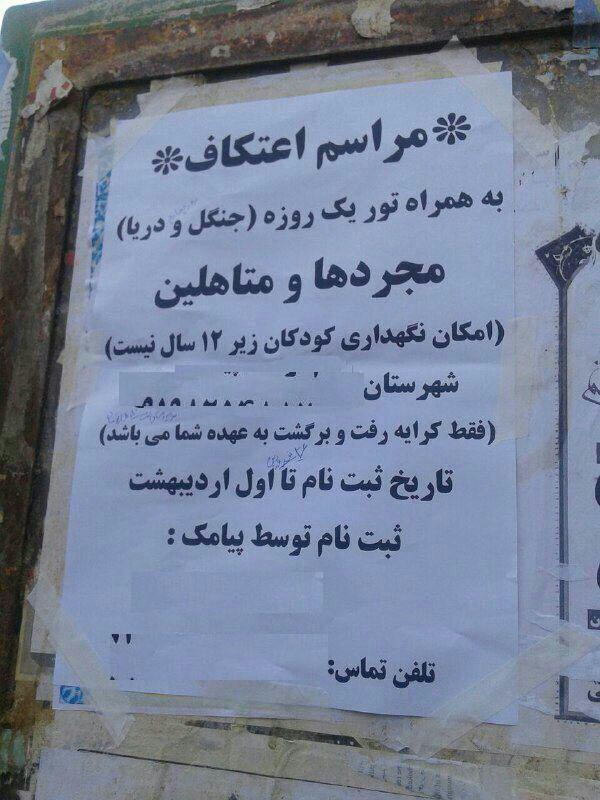 ❊مراسم اعتکاف❊
به همراه تور یک روزه (جنگل و دریا)
مجردها و متاهلین
(امکان نگهداری کودکان زیر ۱۲ سال نیست)
شهرستان
(فقط کرایه رفت و برگشت به عهده شما می باشد)
تاریخ ثبت نام تا اول اردیبهشت
ثبت نام توسط پیامک :
تلفن تماس: